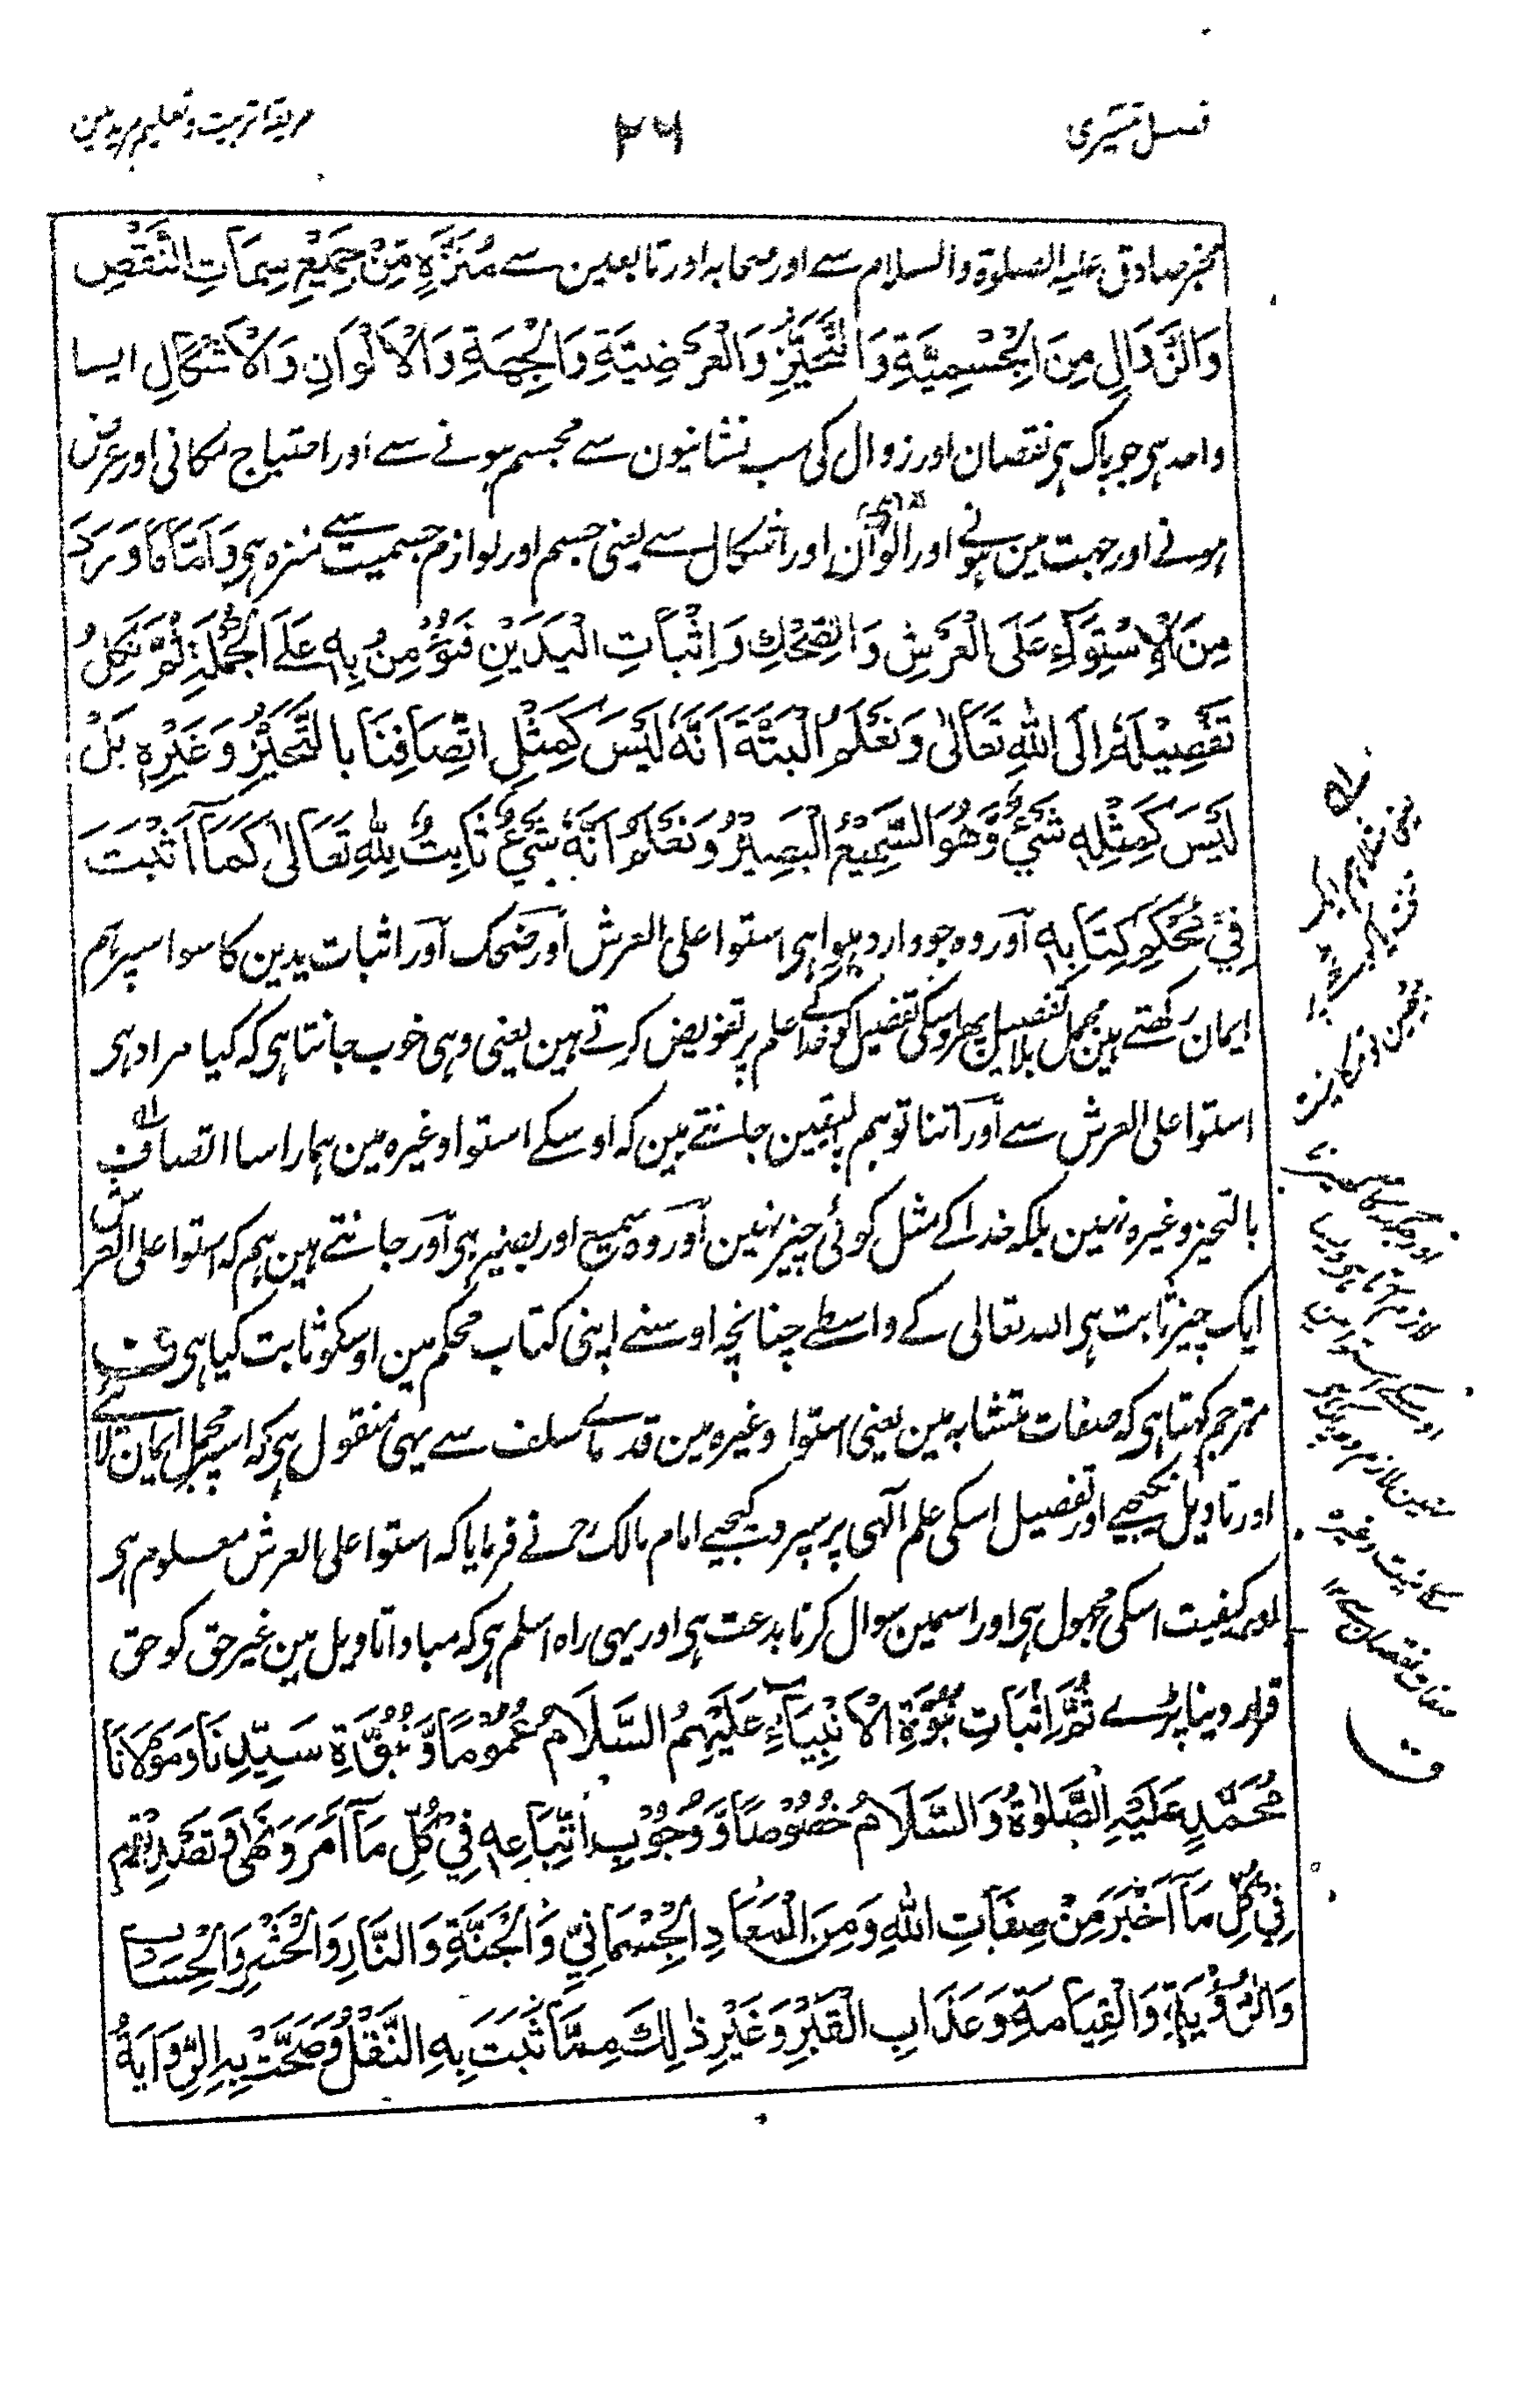 فصل تیسری
۲۶
طریقۂ تربیت و تعلیم مریدین
مخبر صادق علیہ الصلوۃ والسلام سے اور صحابہ اور تابعین سے مُنَزَّہٍ مِّنْ جَمِیْعِ سِمَاتِ النَّقْصِ
وَالزَّوَالِ مِنَ الْجِسْمِیَّۃِ وَالتَّحَیُّزِ وَالْعَرَضِیَّۃِ وَالْجِھَۃِ وَالْاَلْوَانِ وَالْاَشْکَالِ ایسا
واحد ہی جو پاک ہی نقصان اور زوال کی سب نشانیون سے مجسم ہونے سے اور احتیاج مکانی اور عرض
ہونے اور جہت مین ہونے اور الوان اور اشکال سے یعنی جسم اور لوازم جسمیت سے منزہ ہی وَاَمَّا مَا وَرَدَ
مِنَ الْاِسْتِوَآءِ عَلَی الْعَرْشِ وَالضِّحْکِ وَاِثْبَاتِ الْیَدَیْنِ فَنُؤْمِنُ بِہٖ عَلَے الْجُمْلَۃِ ثُمَّ نَکِلُ
تَفْصِیْلَہٗ اِلَی اللّٰہِ تَعَالٰی وَنَعْلَمُ الْبَتَّۃَ اَنَّہٗ لَیْسَ کَمِثْلِ اتِّصَافِنَا بِالتَّحَیُّزِ وَغَیْرِہٖ بَلْ
لَیْسَ کَمِثْلِہٖ شَیْءٌ وَّھُوَ السَّمِیْعُ الْبَصِیْرُ وَنَعْلَمُ اَنَّہٗ شَیْءٌ ثَابِتٌ لِلّٰہِ تَعَالٰی کَمَا اَثْبَتَ
فِیْ مُحْکَمِ کِتَابِہٖ اور وہ جو وارد ہوا ہی استوا علی العرش اور ضحک اور اثبات یدین کا سو اسپر ہم
ایمان رکھتے ہین مجمل بلا تفصیل پھر اوسکی تفصیل کو خدا کے علم پر تفویض کرتے ہین یعنی وہی خوب جانتا ہی کہ کیا مراد ہی
استوا علی العرش سے اور اتنا تو ہم بالیقین جانتے ہین کہ اوسکے استوا وغیرہ مین ہمارا سا اتصاف
بالتحیز وغیرہ نہین بلکہ خدا کے مثل کوئی چیز نہین اور وہ سمیع اور بصیر ہی اور جانتے ہین ہم کہ استوا علی العرش
ایک چیز ثابت ہی اللہ تعالی کے واسطے چنانچہ اوسنے اپنی کتاب محکم مین اوسکو ثابت کیا ہی ف
مترجم کہتا ہی کہ صفات متشابہ مین یعنی استوا وغیرہ مین قدمائے سلف سے یہی منقول ہی کہ اسپر مجمل ایمان لائے
اور تاویل نکیجیے اور تفصیل اسکی علم الٰہی پر سپرد کیجیے امام مالک رح نے فرمایا کہ استوا علی العرش معلوم ہی
اور کیفیت اسکی مجہول ہی اور اسمین سوال کرنا بدعت ہی اور یہی راہ اسلم ہی کہ مبادا تاویل مین غیر حق کو حق
قرار دینا پڑے ثُمَّ اِثْبَاتِ نُبُوَّۃِ الْاَنْبِیَآءِ عَلَیْہِمُ السَّلَامُ عُمُوْمًا وَّنُبُوَّۃِ سَیِّدِنَا وَمَوْلَانَا
مُحَمَّدٍ عَلَیْہِ الصَّلٰوۃُ وَالسَّلَامُ خُصُوْصًا وَّوُجُوْبِ اتِّبَاعِہٖ فِیْ کُلِّ مَا اَمَرَ وَنَھٰی وَتَصْدِیْقِہٖ
فِیْ کُلِّ مَا اَخْبَرَ مِنْ صِفَاتِ اللّٰہِ وَمِنَ الْمَعَادِ الْجِسْمَانِیِّ وَالْجَنَّۃِ وَالنَّارِ وَالْحَشْرِ وَالْحِسَابِ
وَالرُّؤْیَۃِ وَالْقِیَامَۃِ وَعَذَابِ الْقَبْرِ وَغَیْرِ ذٰلِکَ مِمَّا ثَبَتَ بِہِ النَّقْلُ وَصَحَّتْ بِہِ الرِّوَایَۃُ